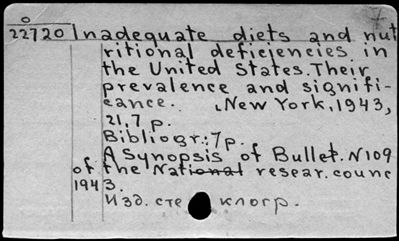 7
0
22720 Inadequate diets and nut
ritional deficiencies in
the United States. Their
prevalence and signifi-
cance. New York, 1943,
21,7 p.
Bibliogr.: 7p.
A Synopsis of Bullet. N109
of the National resear. counc
1943.
Изд. стеклогр.